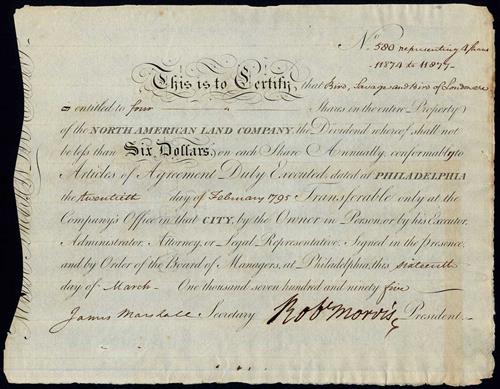 No. 580 representing 4 Shares
11874 to 11877
This is to Certify, that Bird, Savage and Bird of London are
entitled to four Shares in the entire Property
of the NORTH AMERICAN LAND COMPANY, the Dividend whereof shall not
be less than Six Dollars, on each Share Annually, conformably to
Articles of Agreement Duly Executed, dated at PHILADELPHIA
the twentieth day of February 1795 Transferable only at the
Company's Office in that CITY, by the Owner in Person, or by his Executor,
Administrator, Attorney, or Legal Representative. Signed in the presence
and by Order of the Board of Managers, at Philadelphia, this sixteenth
day of March One thousand seven hundred and ninety five
James Marshall Secretary Robt Morris President